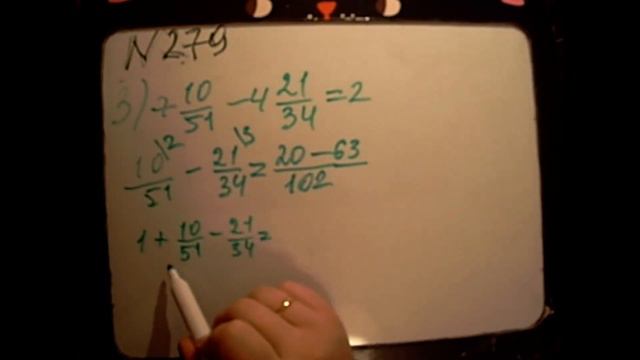 N 279
3) 7 10/51 - 4 21/34 = 2
10\2/51 - 21\3/34 = 20 - 63/102
1 + 10/51 - 21/34 =